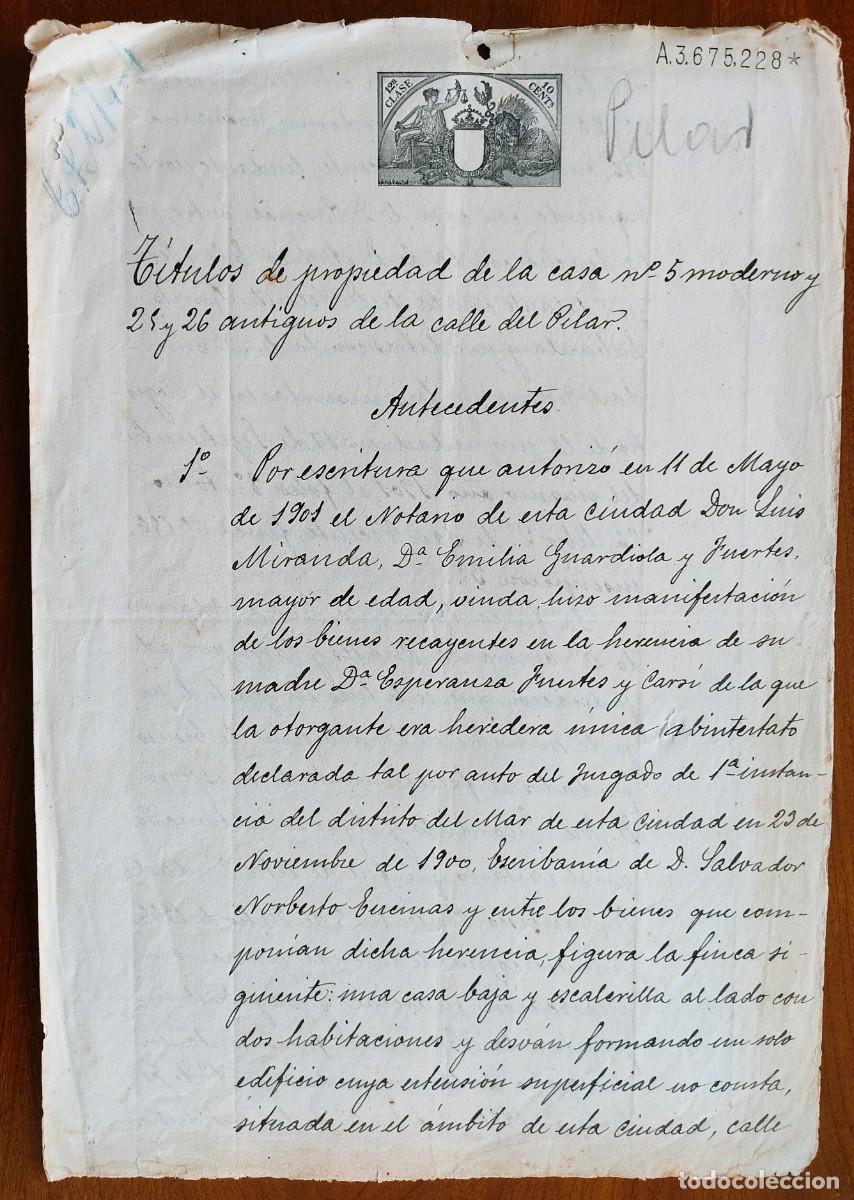 A.3.675.228*
12ª CLASE
10 CENTS
Pilar
Títulos de propiedad de la casa nº 5 moderno y
25 y 26 antiguos de la calle del Pilar.
Antecedentes.
1º Por escritura que autorizó en 11 de Mayo
de 1901 el Notario de esta Ciudad Don Luis
Miranda, Dª Emilia Guardiola y Fuertes,
mayor de edad, viuda, hizo manifestación
de los bienes recayentes en la herencia de su
madre Dª Esperanza Fuertes y Carsí de la que
la otorgante era heredera única abintestato
declarada tal por auto del Juzgado de 1ª instan-
cia del distrito del Mar de esta Ciudad en 23 de
Noviembre de 1900, Escribanía de D. Salvador
Norberto Encinas y entre los bienes que com-
ponían dicha herencia, figura la finca si-
guiente: una casa baja y escalerilla al lado con
dos habitaciones y desván formando un solo
edificio cuya extensión superficial no consta,
situada en el ámbito de esta Ciudad, calle
todocoleccion